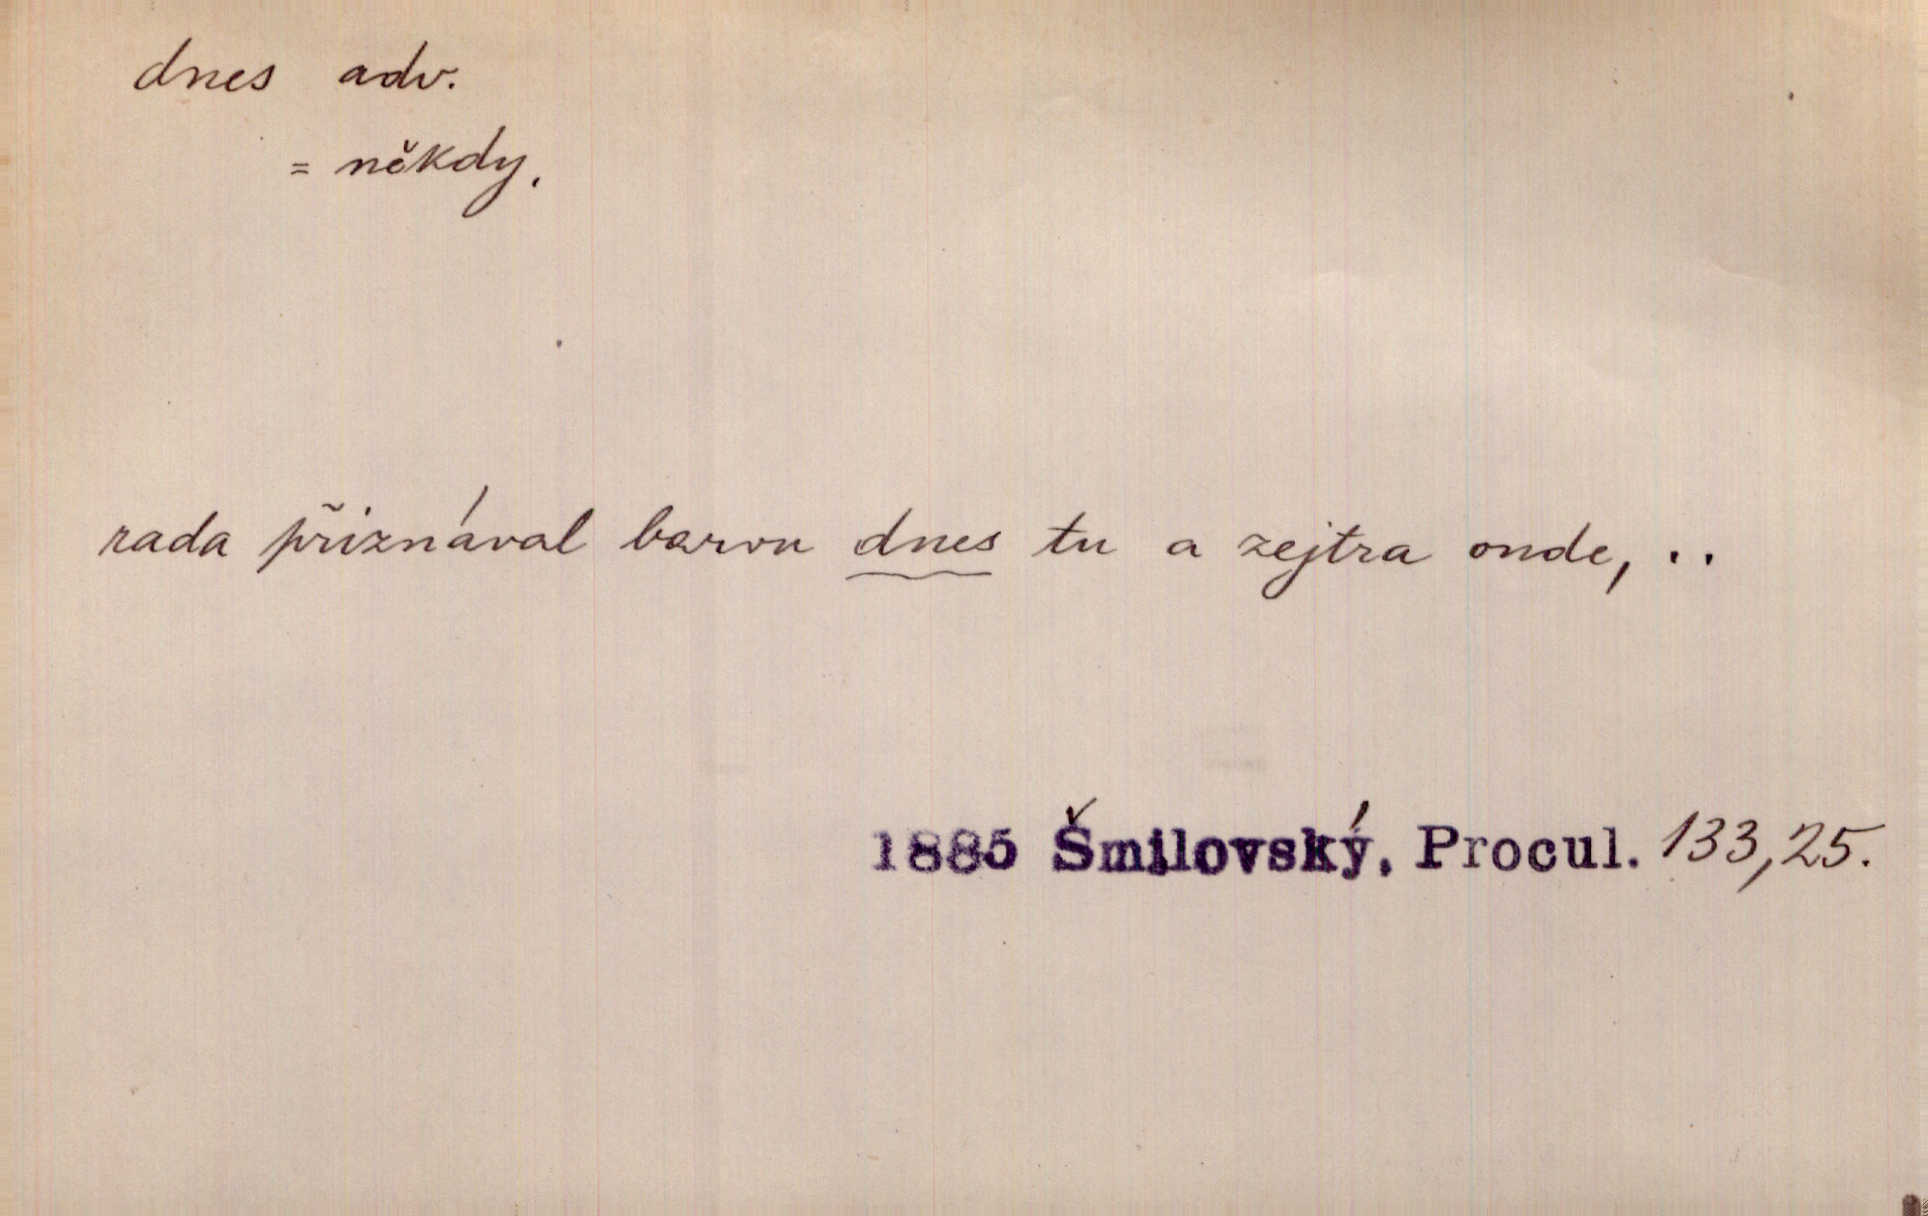 dnes adv.
= někdy.
rada přiznával barvu dnes tu a zejtra onde, ..
1885 Šmilovský, Procul. 133,25.